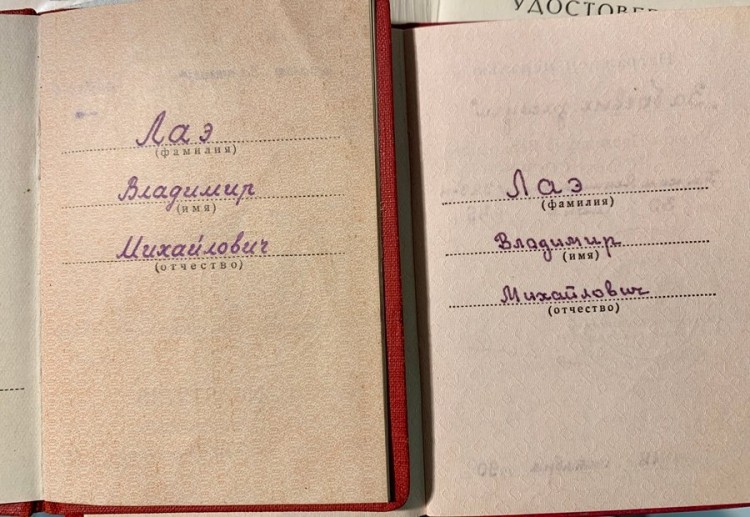 Лаэ
(фамилия)
Владимир
(имя)
Михайлович
(отчество)
УДОСТОВЕР
Лаэ
(фамилия)
Владимир
(имя)
Михайлович
(отчество)